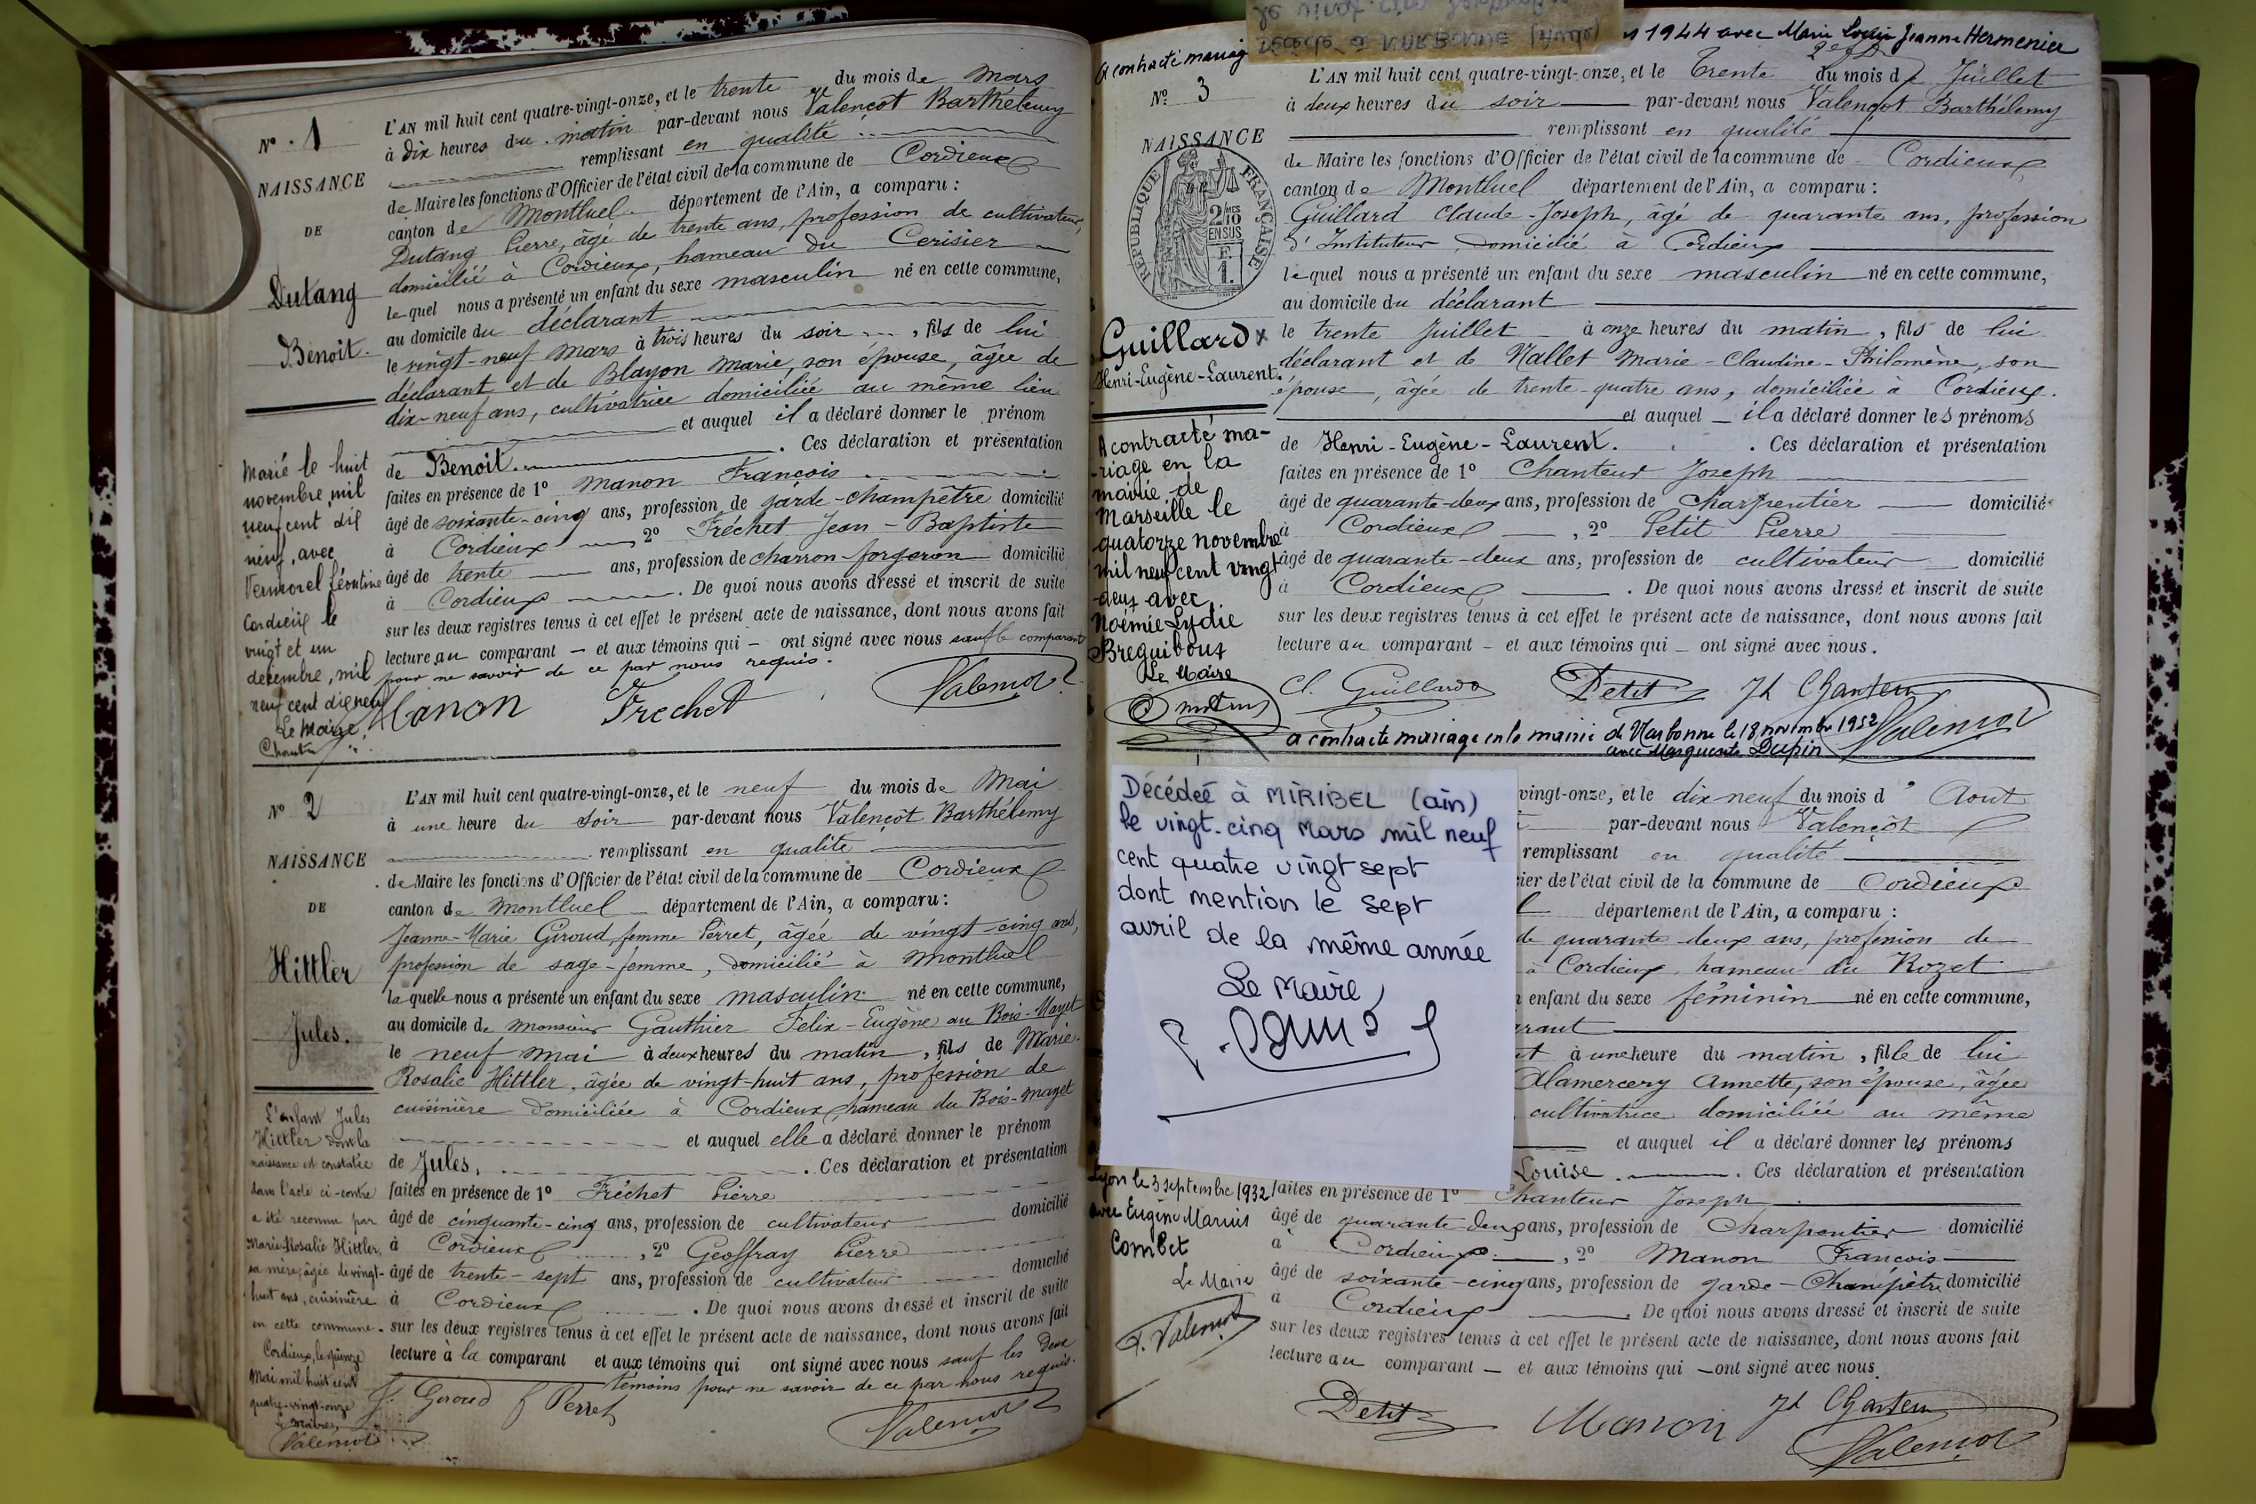 N° 1
NAISSANCE
DE
Dutang
Benoit.
L'AN mil huit cent quatre-vingt-onze, et le trente du mois de Mars
à dix heures du matin par-devant nous Valençot Barthélemy
remplissant en qualité
de Maire les fonctions d'Officier de l'état civil de la commune de Cordieux
canton de Montluel département de l'Ain, a comparu :
Dutang Pierre, âgé de trente ans, profession de cultivateur,
domicilié à Cordieux, hameau du Cerisier
lequel nous a présenté un enfant du sexe masculin né en cette commune,
au domicile du déclarant
le vingt-neuf Mars à trois heures du soir, fils de lui
déclarant et de Blayon Marie, son épouse, âgée de
dix-neuf ans, cultivatrice domiciliée au même lieu
et auquel il a déclaré donner le prénom
de Benoit. Ces déclaration et présentation
faites en présence de 1° Manon François
âgé de soixante-cinq ans, profession de garde-champêtre domicilié
à Cordieux 2° Fréchet Jean-Baptiste
âgé de trente ans, profession de charron-forgeron domicilié
à Cordieux. De quoi nous avons dressé et inscrit de suite
sur les deux registres tenus à cet effet le présent acte de naissance, dont nous avons fait
lecture au comparant - et aux témoins qui - ont signé avec nous sauf le comparant
pour ne savoir de ce par nous requis.
Manon Frechet Valençot
Marié le huit
novembre mil
neuf cent dix
neuf, avec
Vermorel Léontine
Cordieux le
vingt et un
décembre, mil
neuf cent dix neuf
Le Maire,
N° 2
NAISSANCE
DE
Hittler
Jules.
L'AN mil huit cent quatre-vingt-onze, et le neuf du mois de Mai
à une heure du soir par-devant nous Valençot Barthélemy
remplissant en qualité
de Maire les fonctions d'Officier de l'état civil de la commune de Cordieux
canton de Montluel département de l'Ain, a comparu :
Jeanne-Marie Giroud, femme Perret, âgée de vingt-cinq ans,
profession de sage-femme, domicilié à Montluel
laquelle nous a présenté un enfant du sexe masculin né en cette commune,
au domicile de Monsieur Gauthier Felix-Eugène au Bois-Mayet
le neuf Mai à deux heures du matin, fils de Marie-
Rosalie Hittler, âgée de vingt-huit ans, profession de
cuisinière domiciliée à Cordieux, hameau du Bois-Mayet
et auquel elle a déclaré donner le prénom
de Jules. Ces déclaration et présentation
faites en présence de 1° Fréchet Pierre
âgé de cinquante-cinq ans, profession de cultivateur domicilié
à Cordieux, 2° Geoffray Pierre
âgé de trente-sept ans, profession de cultivateur domicilié
à Cordieux. De quoi nous avons dressé et inscrit de suite
sur les deux registres tenus à cet effet le présent acte de naissance, dont nous avons fait
lecture à la comparant et aux témoins qui ont signé avec nous sauf les deux
témoins pour ne savoir de ce par nous requis.
J. Giroud f Perret Valençot
L'enfant Jules
Hittler dont la
naissance est constatée
dans l'acte ci-contre
a été reconnu par
Marie-Rosalie Hittler,
sa mère, âgée de vingt-
huit ans, cuisinière
en cette commune.
Cordieux, le quinze
Mai mil huit cent
quatre-vingt-onze
Le Maire,
Valençot
A contracté mariag
1944 avec Marie Louise Jeanne Hermenier
N° 3
NAISSANCE
RÉPUBLIQUE FRANÇAISE
2/10 MES
EN SUS
F.
1.
Guillard
Henri-Eugène-Laurent.
L'AN mil huit cent quatre-vingt-onze, et le Trente du mois de Juillet
à deux heures du soir par-devant nous Valençot Barthélemy
remplissant en qualité
de Maire les fonctions d'Officier de l'état civil de la commune de Cordieux
canton de Montluel département de l'Ain, a comparu :
Guillard Claude-Joseph, âgé de quarante ans, profession
d'Instituteur domicilié à Cordieux
lequel nous a présenté un enfant du sexe masculin né en cette commune,
au domicile du déclarant
le trente Juillet à onze heures du matin, fils de lui
déclarant et de Nallet Marie-Claudine-Philomène, son
épouse, âgée de trente-quatre ans, domiciliée à Cordieux.
et auquel il a déclaré donner les prénoms
de Henri-Eugène-Laurent. Ces déclaration et présentation
faites en présence de 1° Chanteur Joseph
âgé de quarante-deux ans, profession de Charpentier domicilié
à Cordieux, 2° Petit Pierre
âgé de quarante-deux ans, profession de cultivateur domicilié
à Cordieux. De quoi nous avons dressé et inscrit de suite
sur les deux registres tenus à cet effet le présent acte de naissance, dont nous avons fait
lecture au comparant - et aux témoins qui - ont signé avec nous.
Cl. Guillard Petit Jh Chanteur
Valençot
a contracté mariage en la mairie de Narbonne le 18 novembre 1932
avec Marguerite Dupin
A contracté ma-
riage en la
mairie de
Marseille le
quatorze novembre
mil neuf cent vingt
deux avec
Noémie Lydie
Breguiboux
Le Maire
Décédée à MIRIBEL (ain)
le vingt-cinq Mars mil neuf
cent quatre vingt sept
dont mention le sept
avril de la même année
Le Maire,
vingt-onze, et le dix neuf du mois d'Aout
par-devant nous Valençot
remplissant en qualité
cier de l'état civil de la commune de Cordieux
département de l'Ain, a comparu :
de quarante-deux ans, profession de
à Cordieux, hameau du Rozet
enfant du sexe féminin né en cette commune,
arant
à une heure du matin, fille de lui
Alamercery Annette, son épouse, âgée
cultivatrice domiciliée au même
et auquel il a déclaré donner les prénoms
Louise. Ces déclaration et présentation
faites en présence de 1° Chanteur Joseph
âgé de quarante deux ans, profession de Charpentier domicilié
à Cordieux, 2° Manon François
âgé de soixante-cinq ans, profession de garde-Champêtre domicilié
à Cordieux De quoi nous avons dressé et inscrit de suite
sur les deux registres tenus à cet effet le présent acte de naissance, dont nous avons fait
lecture au comparant - et aux témoins qui - ont signé avec nous.
Petit Manon Jh Chanteur
Valençot
Lyon le 3 septembre 1932
avec Eugène Marius
Combet
Le Maire